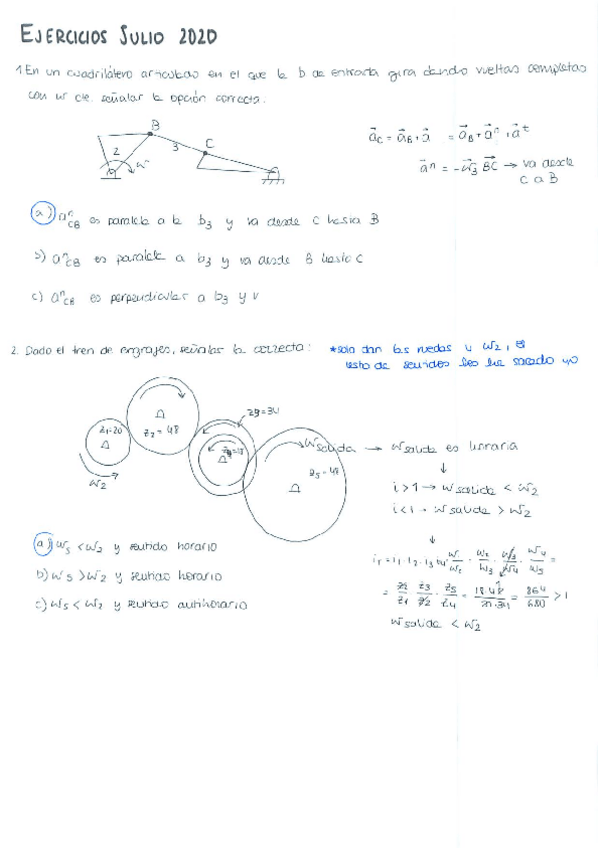 EJERCICIOS JULIO 2020
1. En un cuadrilátero articulado en el que la b de entrada gira dando vueltas completas
con w cte. señalar la opción correcta.
B
C
2
3
w
a⃗C = a⃗B + a⃗ = a⃗B + a⃗n + a⃗t
a⃗n = -w⃗3 BC → va desde
C a B
a) anCB es paralela a la b3 y va desde C hasta B
b) anCB es paralela a b3 y va desde B hasta C
c) anCB es perpendicular a b3 y v
2. Dado el tren de engrajes, señalar la correcta:
*solo dan las ruedas y w2, el
resto de sentidos los he sacado yo
z1=20
z2=48
z3=34
z5=48
w2
wsalida → wsalida es
↓
i>1 → wsalida < w2
i<1 → wsalida > w2
↓
a) w5 < w2 y sentido horario
b) w5 > w2 y sentido horario
c) w5 < w2 y sentido antihorario
= z2/z1 · z3/z2 · z5/z4 = = 864/680 > 1
wsalida < w2